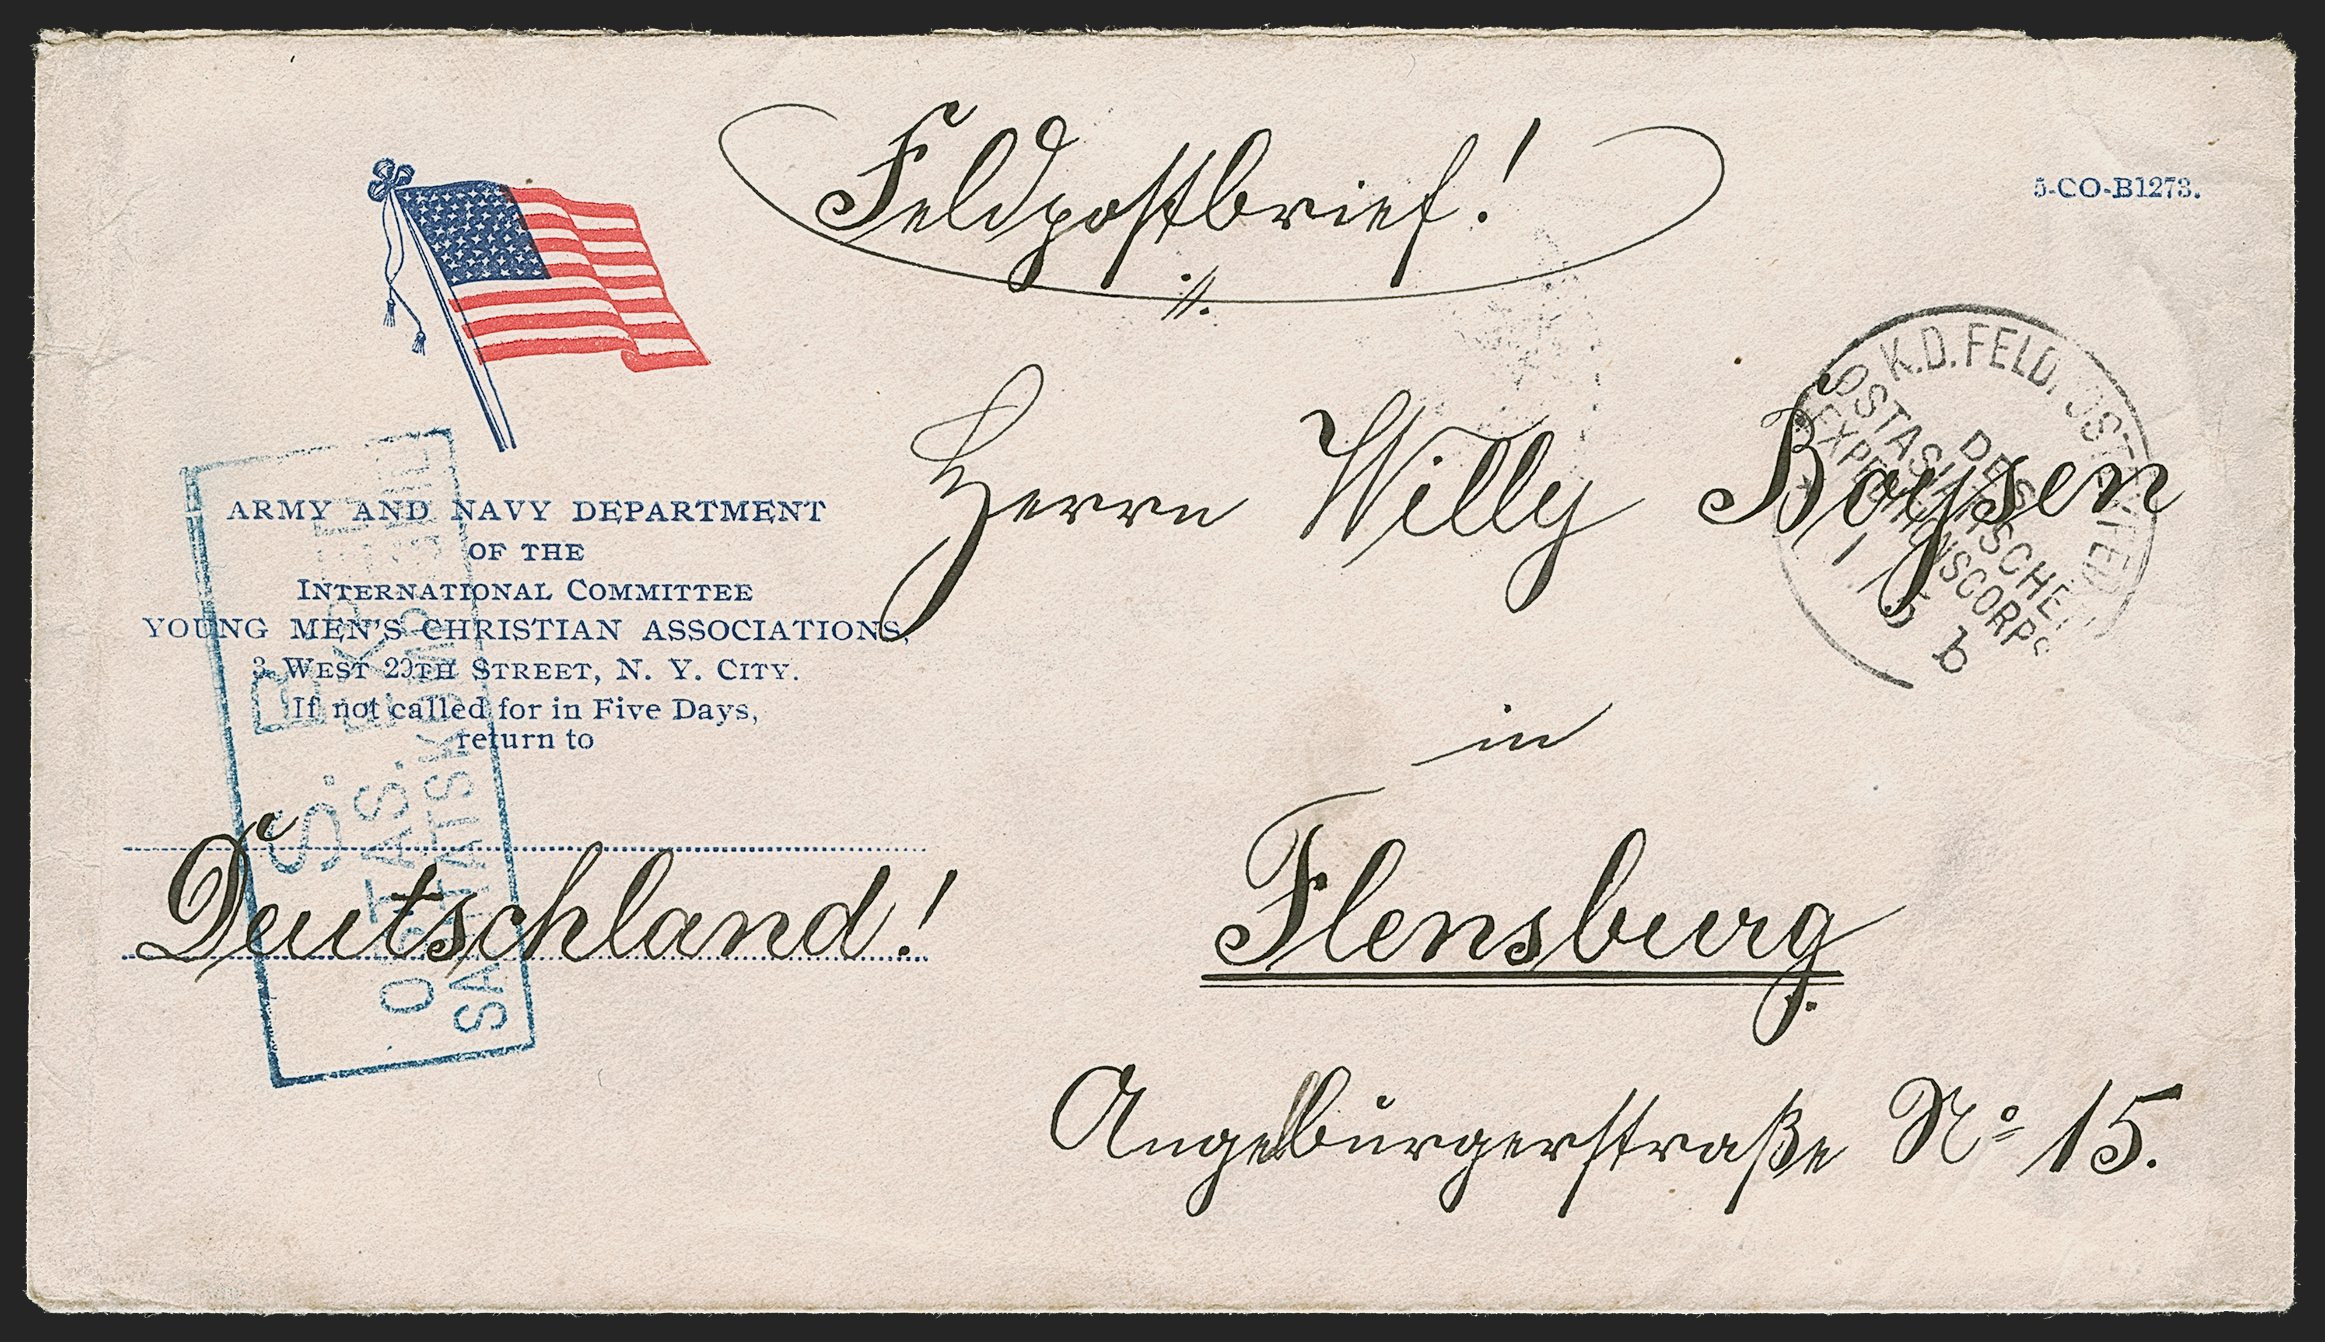 Feldpostbrief!
5-CO-B1273.
K.D. FELD.
DES
OSTASIATISCHEN
EXPEDITIONSCORPS
1/5 b
Herrn Willy Boysen
ARMY AND NAVY DEPARTMENT
OF THE
INTERNATIONAL COMMITTEE
YOUNG MEN'S CHRISTIAN ASSOCIATIONS,
3 WEST 29TH STREET, N. Y. CITY.
If not called for in Five Days,
return to
in
Deutschland!
Flensburg.
Angelbürgerstraße No 15.
S. B.
OSTAS.